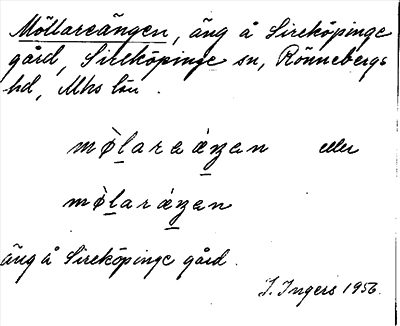 Möllareängen, äng å Sireköpinge
gård, Sireköpinge sn, Rönnebergs
hd, Mhs län.
mø̀l̲area̍ŋ̲en eller
mø̀l̲ara̍ŋ̲en
äng å Sireköpinge gård.
I. Ingers 1956.